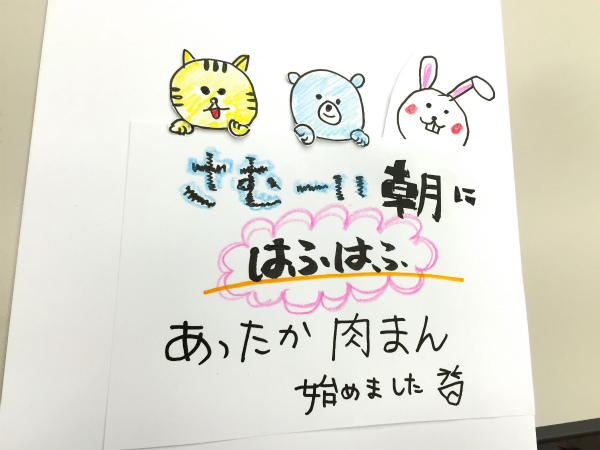 さむーい朝に
はふはふ
あったか肉まん
始めました